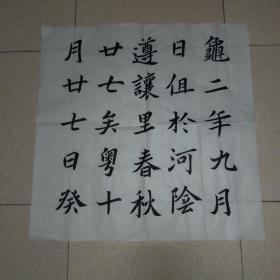 龜二年九月
日俎於河陰
遵讓里春秋
廿七矣粵十
月廿七日癸